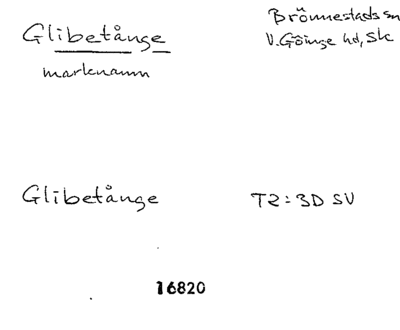 Glibetånge
Brönnestads sn
V. Göinge hd, Sk
marknamn
Glibetånge
T2:3D SV
16820